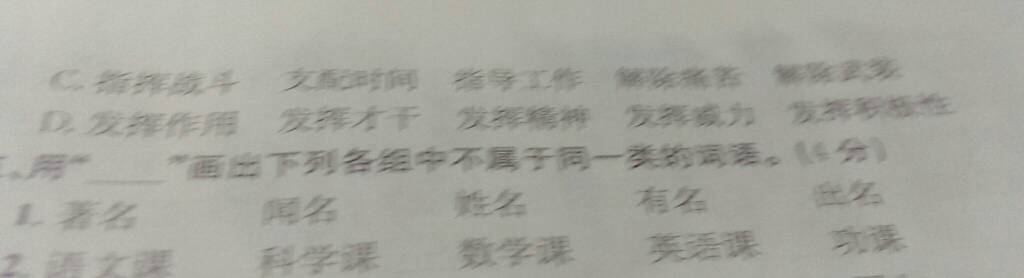 C. 指挥战斗 支配时间 指导工作 解除痛苦 解除武装
D. 发挥作用 发挥才干 发挥精神 发挥威力 发挥积极性
、用“____”画出下列各组中不属于同一类的词语。(6分)
1. 著名 闻名 姓名 有名 出名
2. 语文课 科学课 数学课 英语课 功课